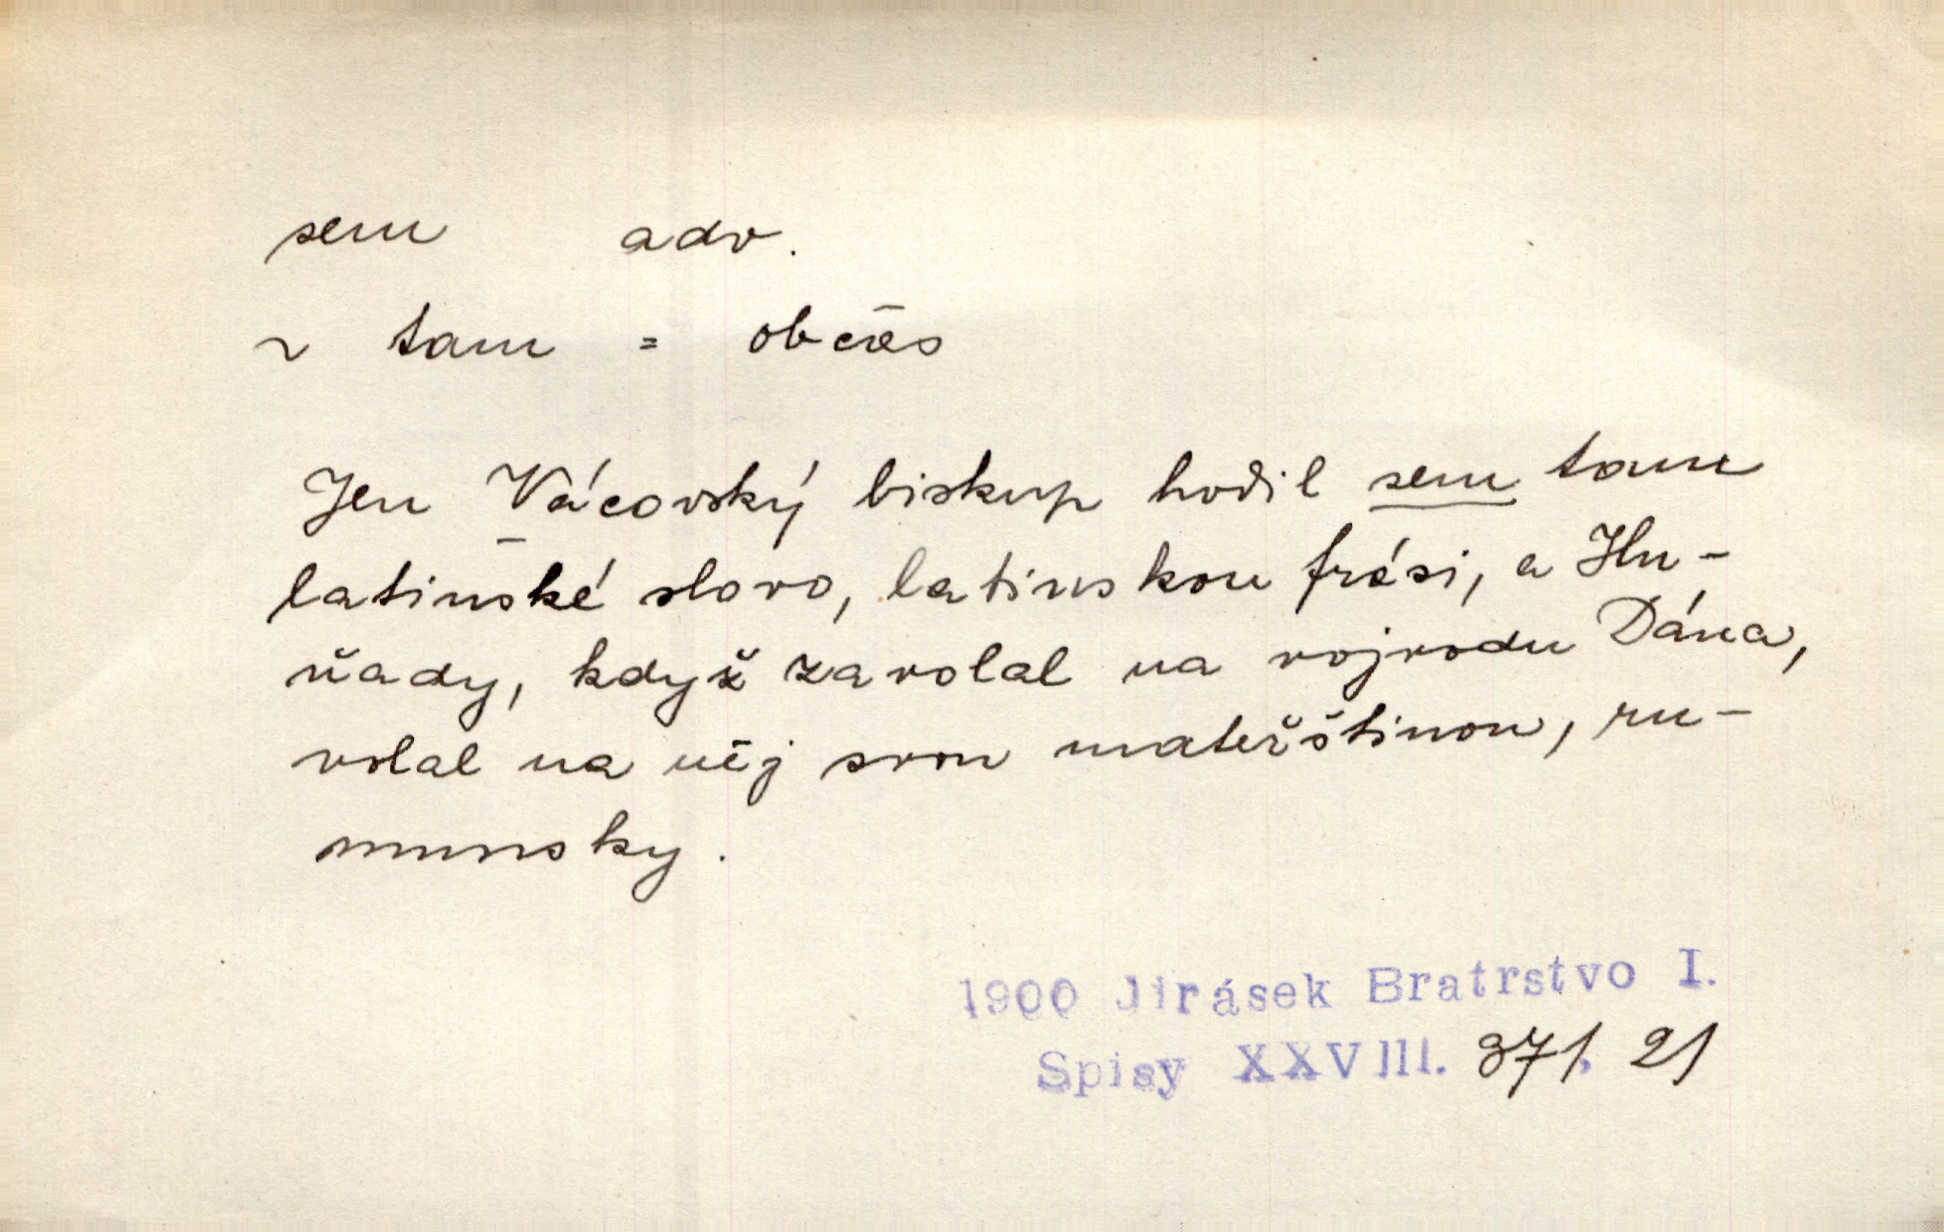 sem adv.
~ tam = občas
Jen Vácovský biskup hodil sem tam
latinské slovo, latinskou frási, a Hu-
ňady, když zavolal na vojvodu Dána,
volal na něj svou mateřštinou, ru-
munsky.
1900 Jirásek Bratrstvo I.
Spisy XXVIII. 371, 21